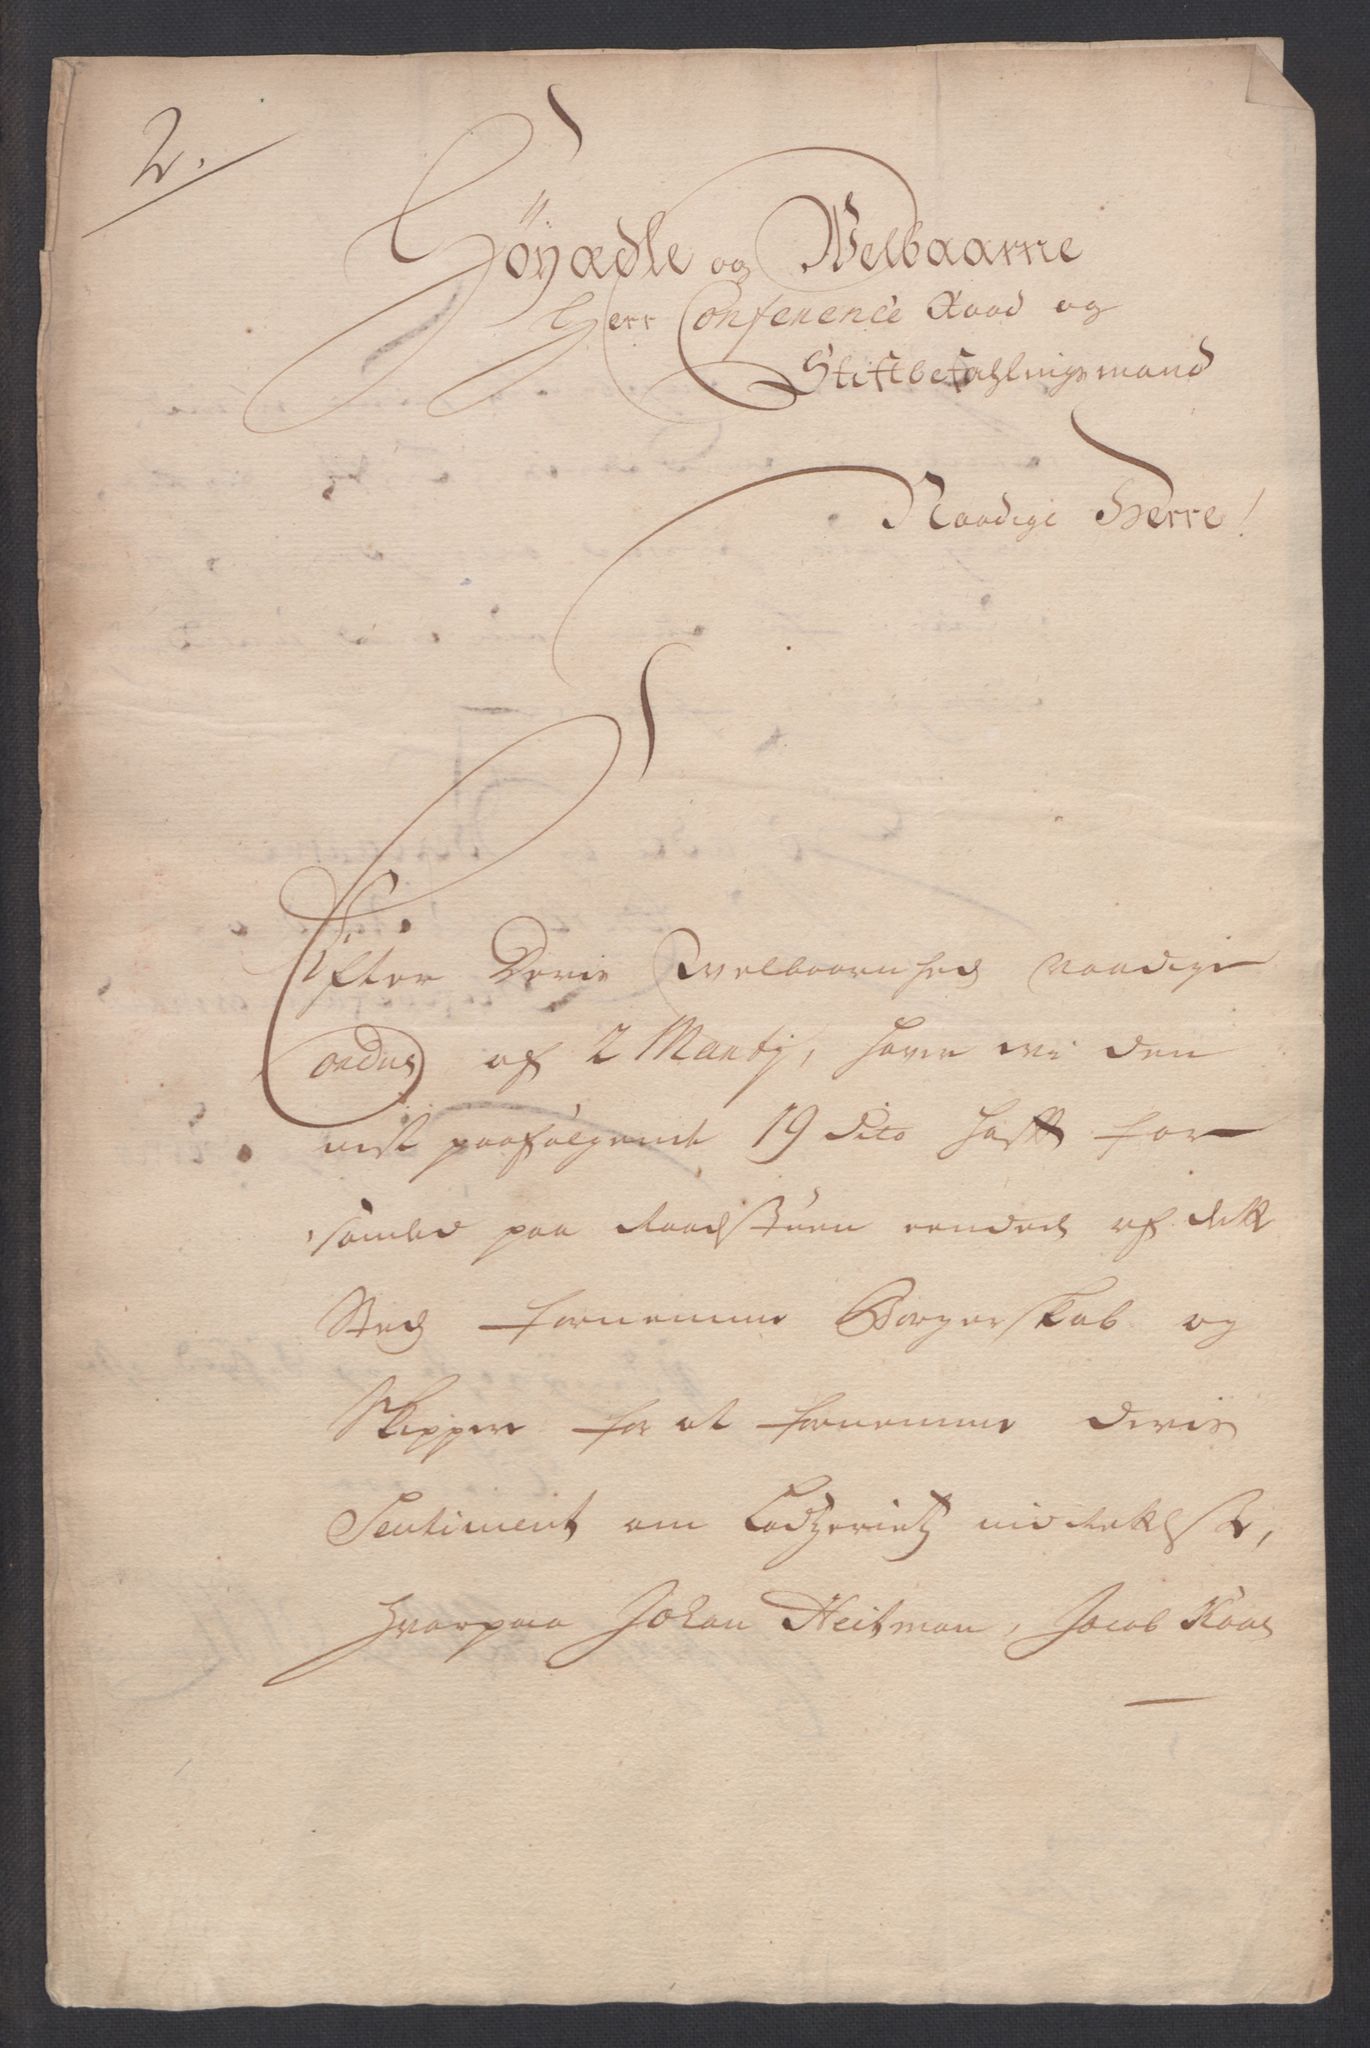 2.
Höyædle og Welbaarne
Herr Conference Raad og
Stiftbefahlingsmand
Naadige Herre!
Efter Deris Welbaarnhed naadige
ordres af 2 Martij, haver wi den
nest paafølgende 19 dito hafft for
samled paa Raadstuen eendeel af dette
Steds fornemme Borgerskab og
Skippere for at fornemme deris
Sentiment om Lodzeriets
hvorpaa Johan Heitman, Jacob Kaas